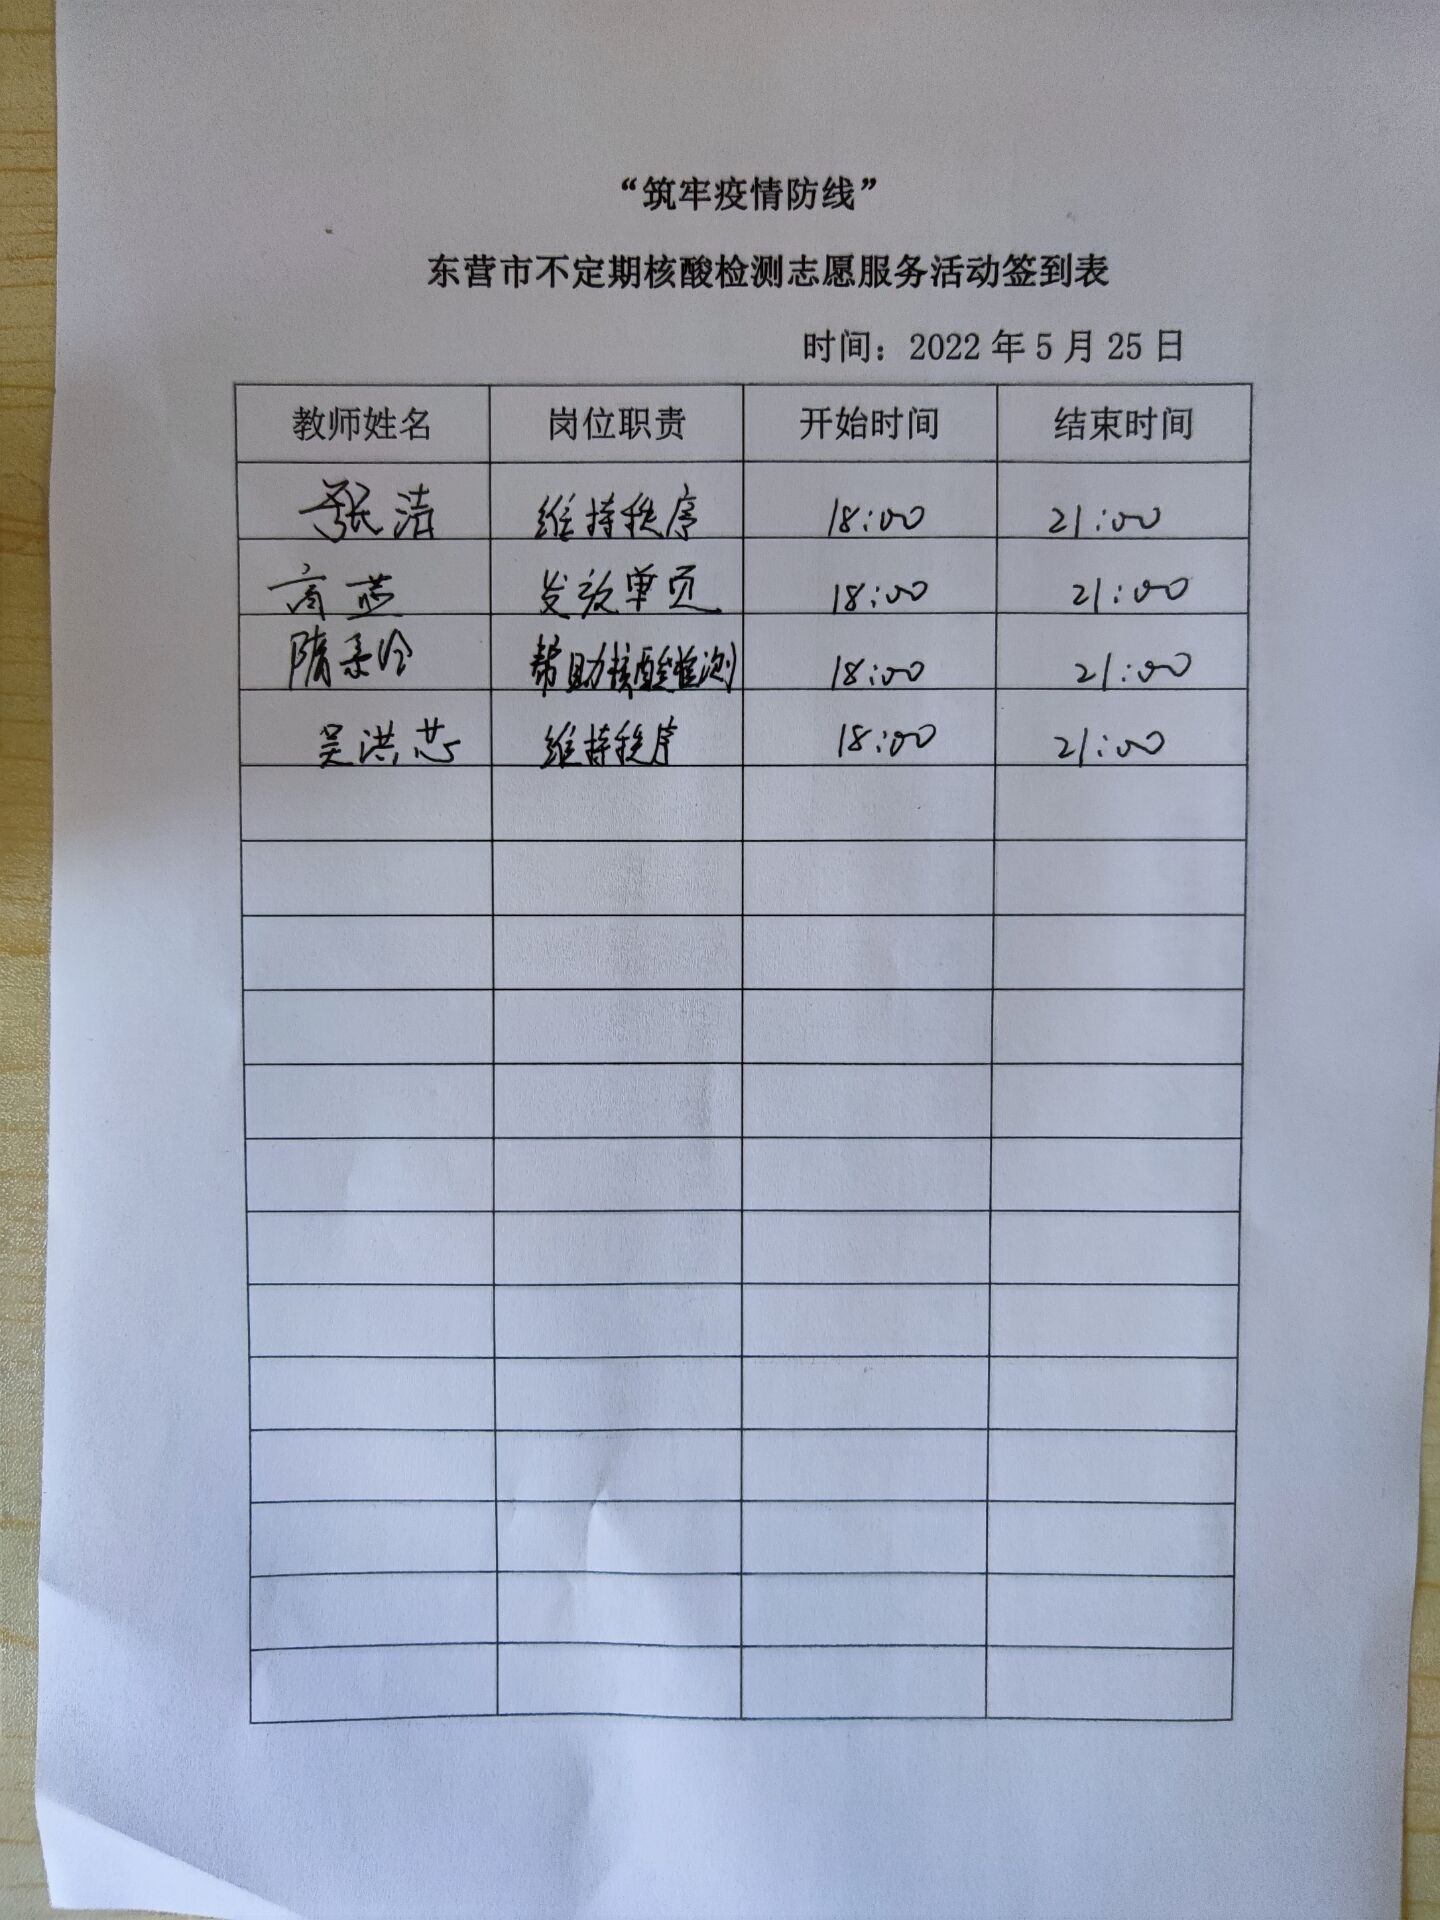 “筑牢疫情防线”
东营市不定期核酸检测志愿服务活动签到表
时间：2022 年 5 月 25 日
教师姓名 岗位职责 开始时间 结束时间
张清 维持秩序 18:00 21:00
商 发放单页 18:00 21:00
隋 帮助核酸检测 18:00 21:00
吴洪芯 维持秩序 18:00 21:00